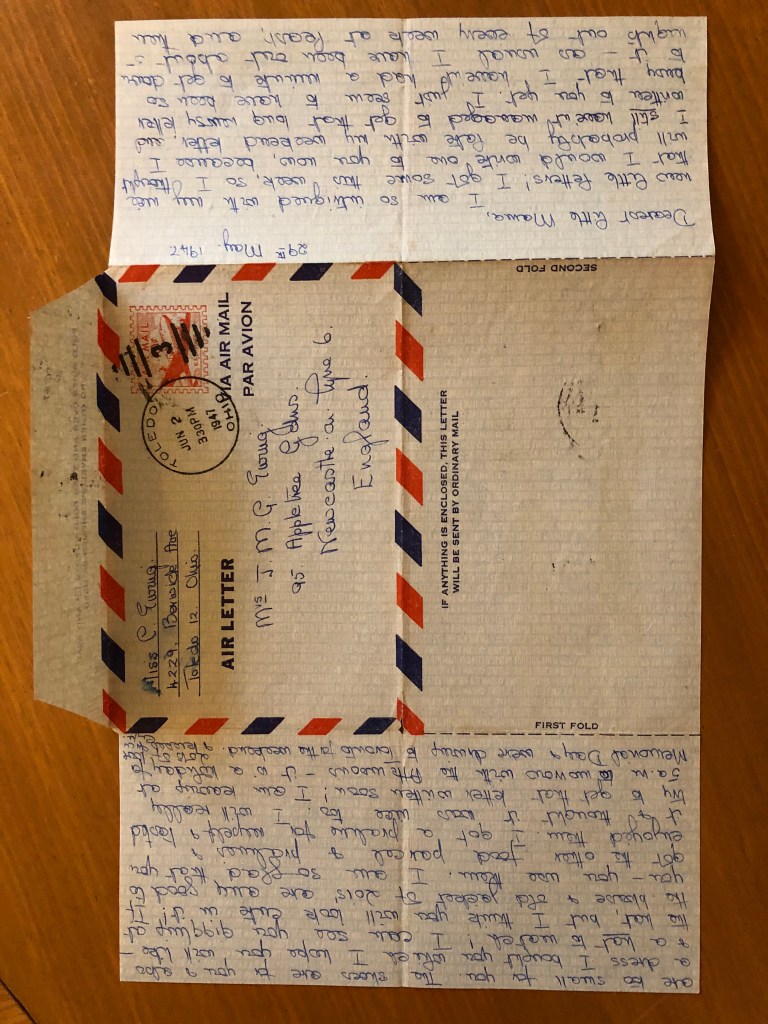 29th May. 1947.
Dearest little Mama,
I am so intrigued with my wee
wee little letters! I got some this week, so I thought
that I would write one to you now, because I
will probably be late with my weekend letter, and
I still have'nt managed to get that big newsy letter
written to you yet. I just seem to have been so
busy that I have'nt had a minute to get down
to it – as usual I have been out about
nights out of every week at least, and then
Miss C. Ewing.
4229, Berwick Ave
Toledo 12. Ohio.
AIR LETTER
VIA AIR MAIL
PAR AVION
AIR MAIL
TOLEDO OHIO
JUN 2
330PM
1947
3
Mrs J. M. G. Ewing.
95. Appletree Gdns.
Newcastle on Tyne 6.
England.
IF ANYTHING IS ENCLOSED, THIS LETTER
WILL BE SENT BY ORDINARY MAIL
SECOND FOLD
FIRST FOLD
are too small for you. The shoes are for you & also
a dress I bought you which I hope you will like –
& a hat to match! I can see you giggling at
the hat, but I think you will look cute in it! If
the blouse & old jacket of Lois' are any good to
you – you use them. I am so glad that you
got the other food parcel & pralines &
enjoyed them. I got a praline for myself & tasted
it & thought it was nice too! I will really
try to get that letter written soon! I am leaving at
5 a.m. tomorrow with the – it is a holiday
Memorial Day & were driving to Toronto for the weekend.